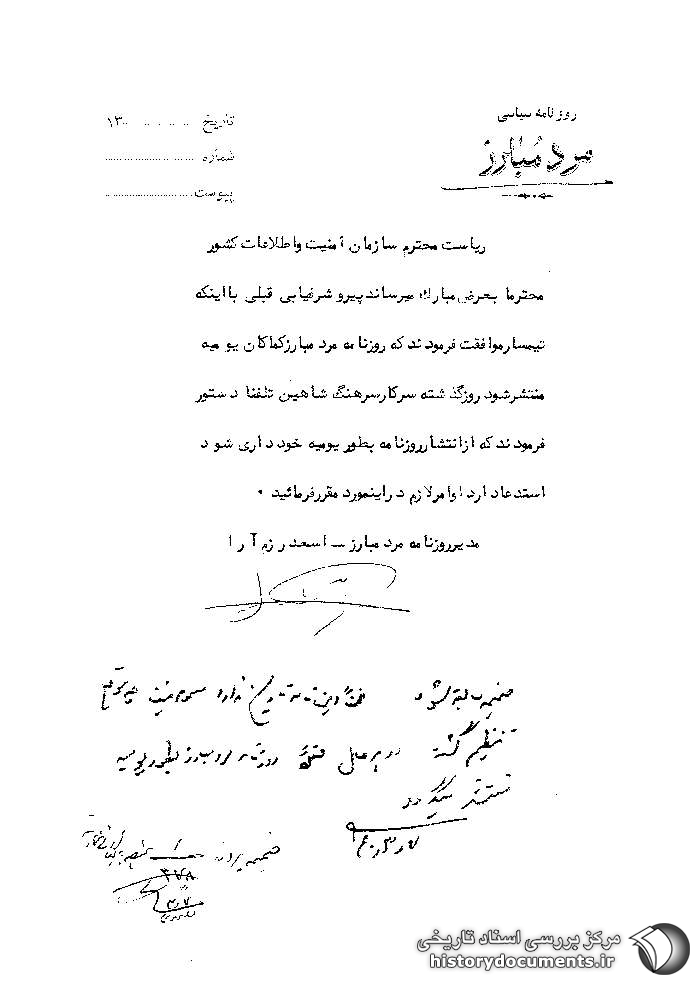 روزنامه سیاسی
مرد مبارز
تاریخ ۱۳۰
شماره
پیوست
ریاست محترم سازمان امنیت واطلاعات کشور
محترما بعرض مبارک میرساند پیرو شرفیابی قبلی بااینکه
تیمسارموافقت فرمودند که روزنامه مرد مبارزکماکان یومیه
منتشرشود روزگذشته سرکارسرهنگ شاهین تلفنا دستور
فرمودند که ازانتشارروزنامه بطور یومیه خودداری شود
استدعادارد اوامرلازم دراینمورد مقررفرمائید .
مدیرروزنامه مرد مبارز ــ اسعد رزم آرا
ضمیمه سابقه شود نامه تاریخ ندارد معلوم نیست چه موقع
تنظیم گشته در هر حال فعلا روزنامه مرد مبارز بطور یومیه
منتشر میگردد
ضمیمه پرونده
۳۷۸
مرکز بررسی اسناد تاریخی
historydocuments.ir